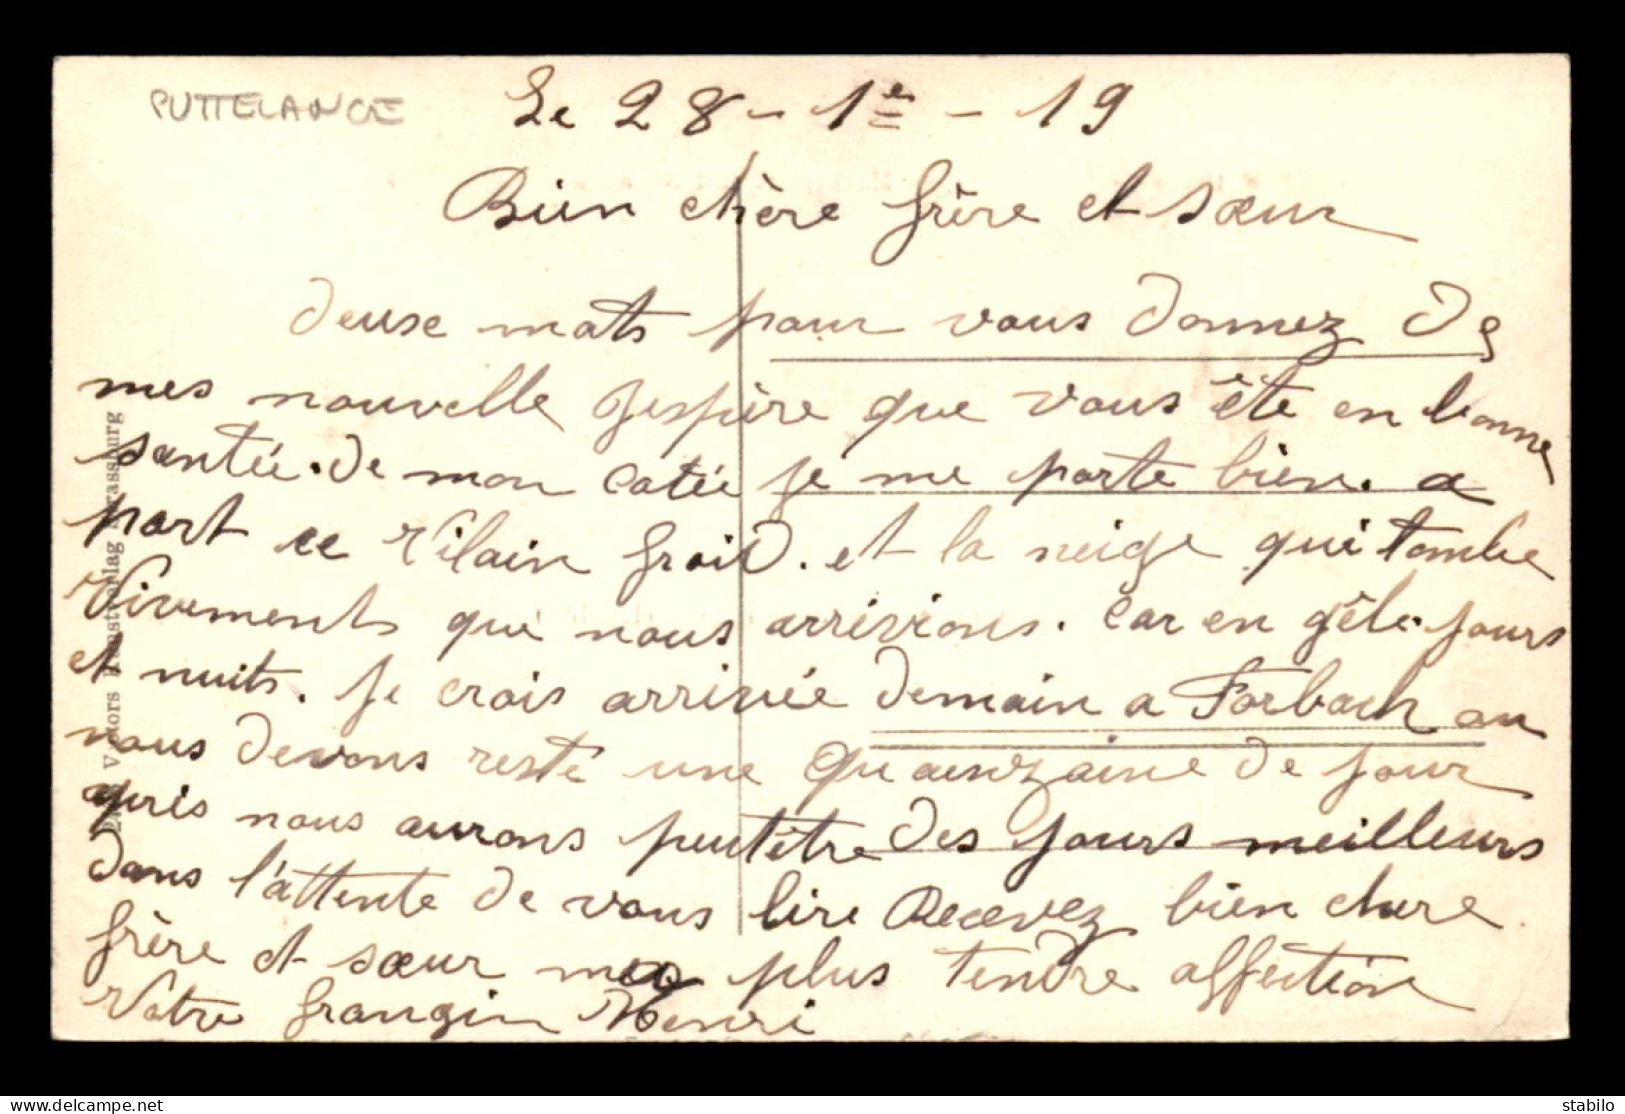 PUTTELANGE
Le 28 - 1e - 19
Bien chère frère et sœur
deuse mots pour vous donnez de
mes nouvelle j'espère que vous ête en bonne
santée. de mon catée je me porte bien. a
part ce vilain froid. et la neige qui tombe
Vivements que nous arrivions. Car en gèle jours
et nuits. je crois arrivée demain a Forbach ou
nous devons resté une quainzaine de jour
après nous aurons peutêtre des jours meilleurs
dans l'attente de vous lire Recevez bien chere
frère et sœur mes plus tendre affection
Votre frangin Henri
Kunstverlag Strassburg
stabilo